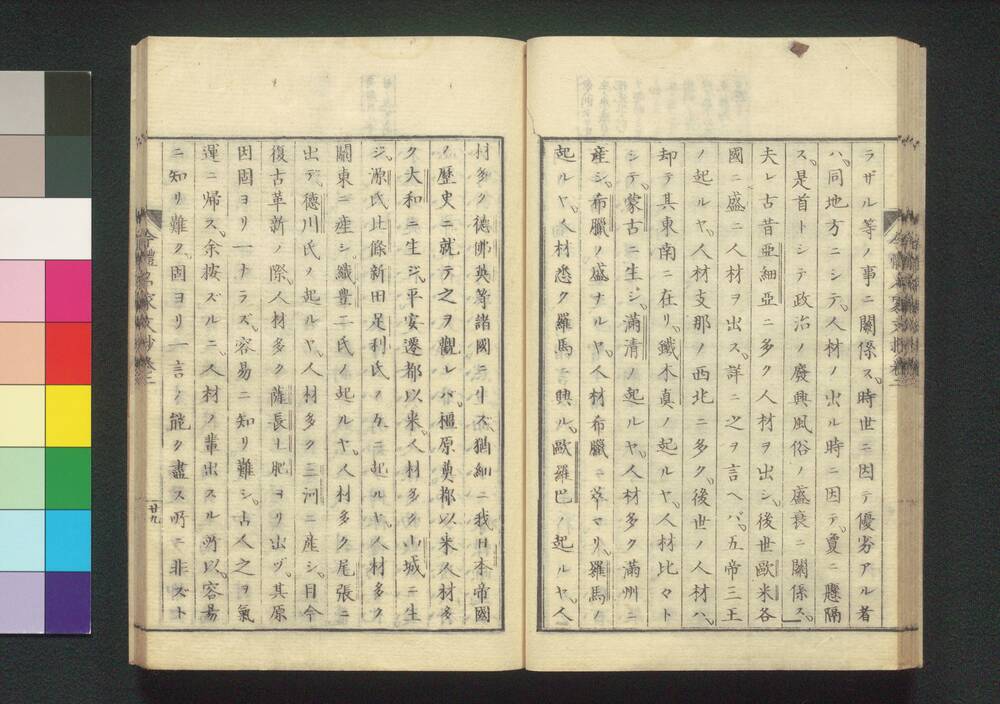 ラザル等ノ事ニ關係ス。時世ニ因テ優劣アル者
ハ、同地方ニシテ、人材ノ出ル時ニ因テ、夐ニ懸隔
ス。是首トシテ政治ノ廢興風俗ノ盛衰ニ關係ス。
夫レ古昔亜細亞ニ多ク人材ヲ出シ、後世歐米各
國ニ盛ニ人材ヲ出ス。詳ニ之ヲ言ヘバ、五帝三王
ノ起ルヤ、人材支那ノ西北ニ多ク、後世ノ人材ハ、
却テ其東南ニ在リ。鐵木真ノ起ルヤ、人材比々ト
シテ、蒙古ニ生シ、滿清ノ起ルヤ、人材多ク滿州ニ
産シ、布臘ノ盛ナルヤ、人材布臘ニ萃マリ、羅馬ノ
起ルヤ、人材悉ク羅馬ニ興ル。歐羅巴ノ起ルヤ、人
材多ク德佛英等諸國ニ出ヅ。猶細ニ我日本帝國
ノ歷史ニ就テ之ヲ觀レバ、橿原奠都以来人材多
ク大和ニ生ジ、平安遷都以来、人材多ク山城ニ生
ジ、源氏北條新田足利氏ノ互ニ起ルヤ、人材多ク
關東ニ産シ、織豊二氏ノ起ルヤ、人材多ク尾張ニ
出デ、德川氏ノ起ルヤ、人材多ク三河ニ産シ、目今
復古革新ノ際、人材多ク薩長土肥ヨリ出ヅ。其原
因固ヨリ一トラズ、容易ニ知リ難シ。古人之ヲ氣
運ニ帰ス。余按ズルニ、人材ノ輩出スル所以、容易
ニ知リ難ク、固ヨリ一言ノ能ク盡ス所ニ非ズト
今體名家文抄卷二
廿九